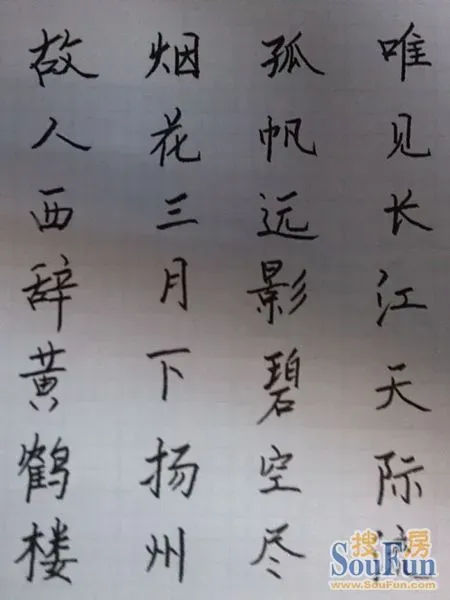 故人西辞黄鹤楼
烟花三月下扬州
孤帆远影碧空尽
唯见长江天际流
搜房
SouFun
www.SouFun.com